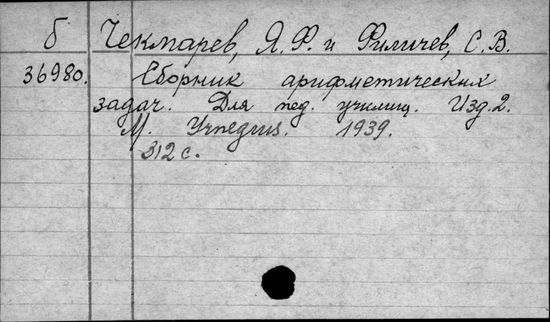 б Чекмарев, Я.Ф. и Филичев, С.В.
36980. Сборник арифметических
задач. Для пед. училищ. Изд.2.
М. Учпедгиз. 1939.
312 с.